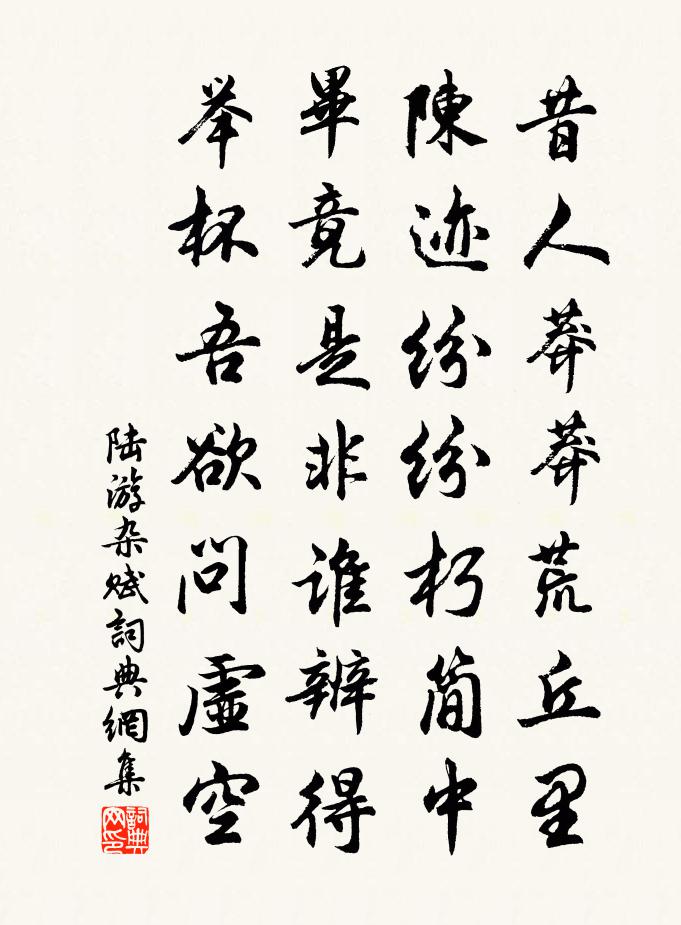 昔人莽莽荒丘里
陳迹纷纷朽简中
畢竟是非谁辨得
举杯吾欲问虛空
陆游杂赋詞典網集
詞典网印